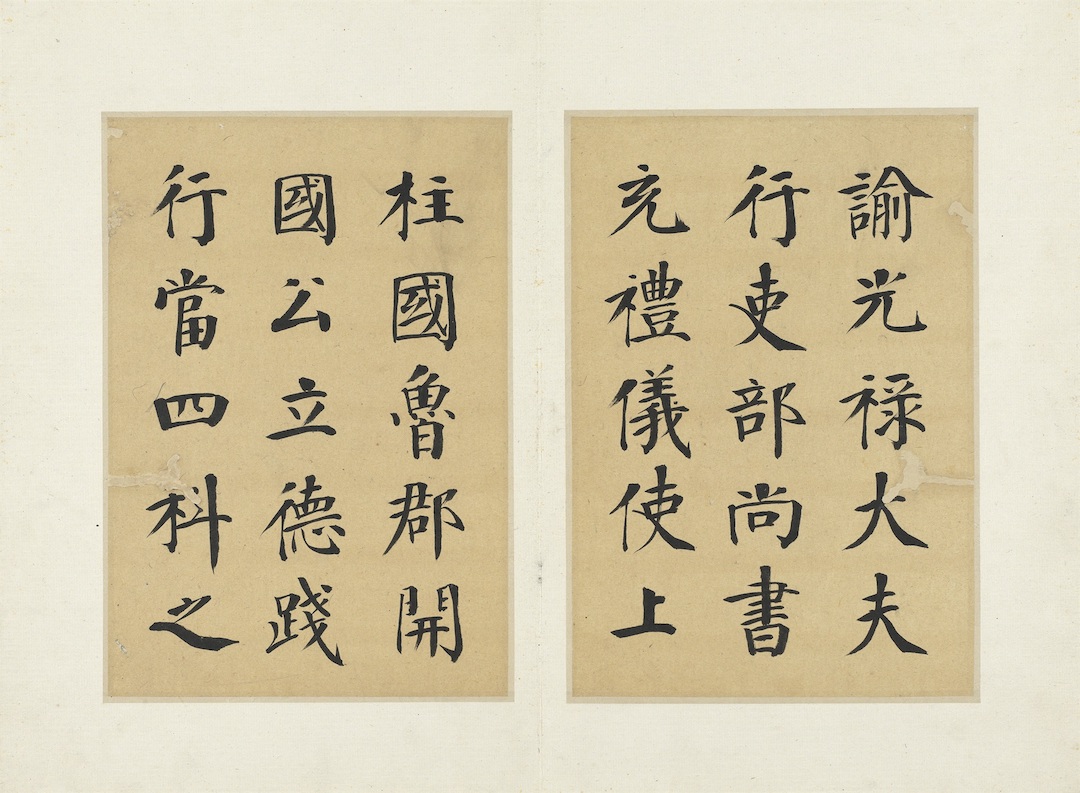 諭光禄大夫
行吏部尚書
充禮儀使上
柱國魯郡開
國公立德踐
行當四科之